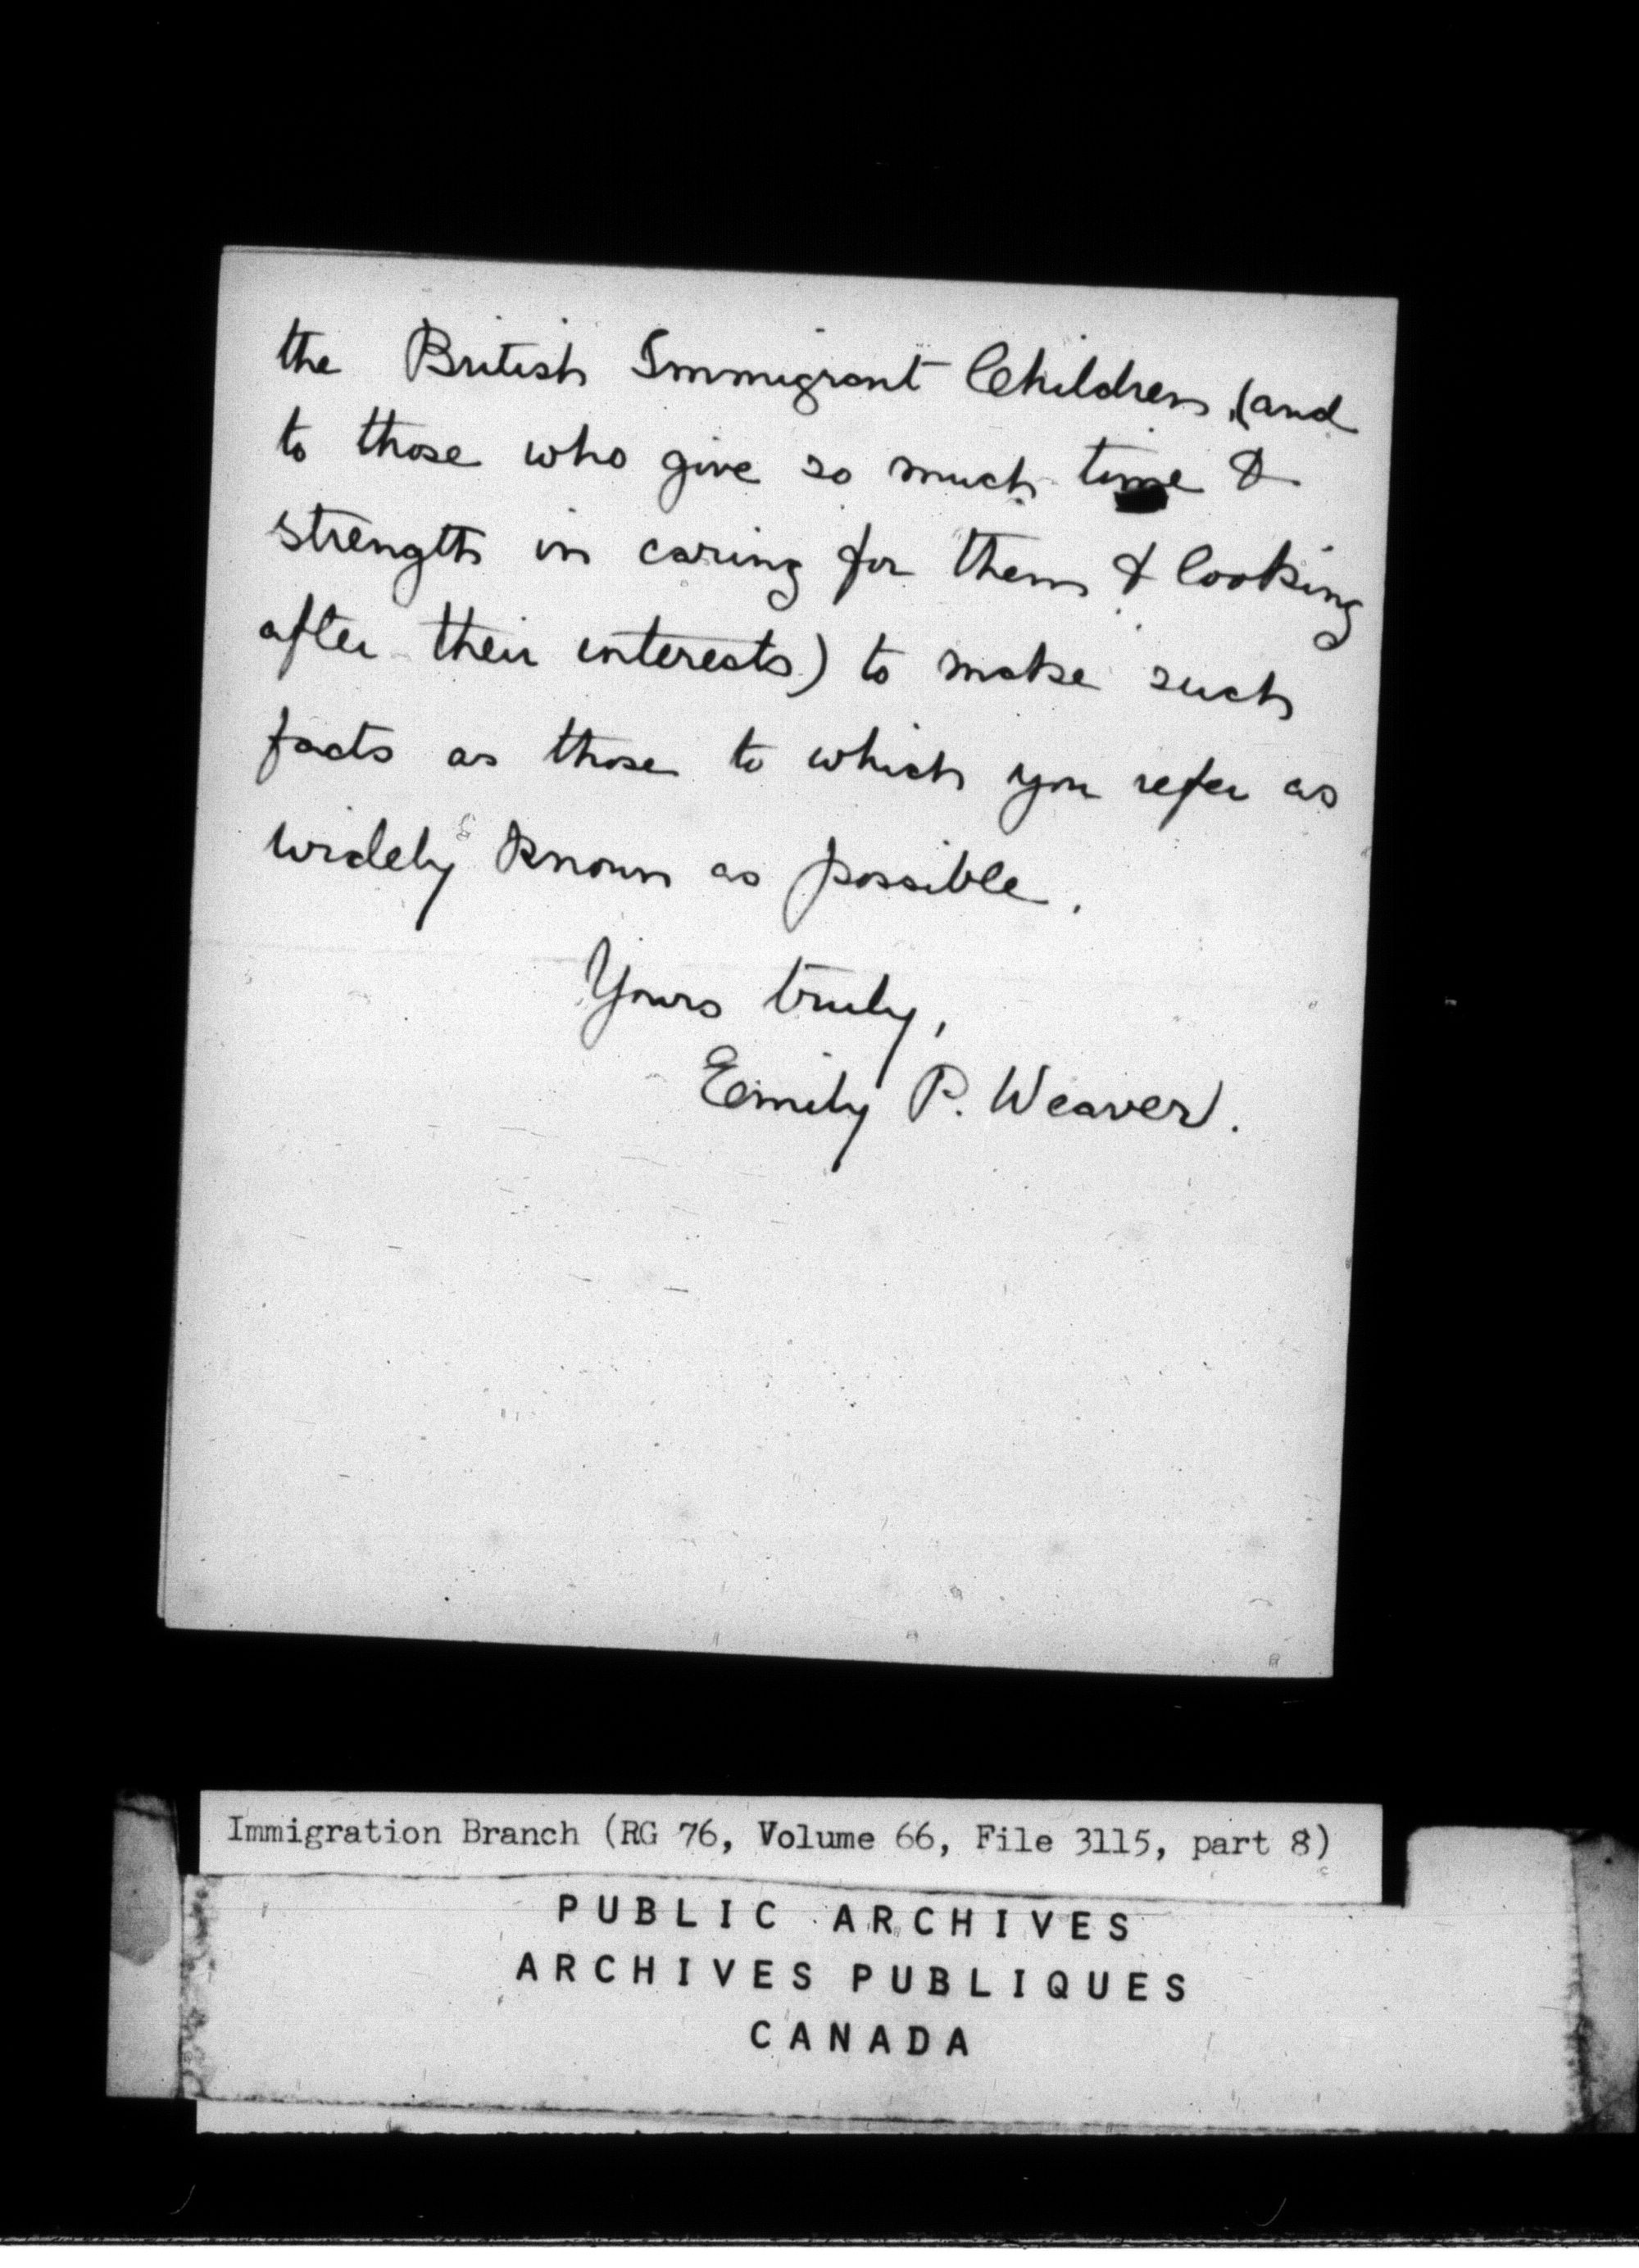 the British Immigrant Children, (and
to those who give so much time &
strength in caring for them & looking
after their interests) to make such
facts as those to which you refer as
widely known as possible.
Yours truly,
Emily P. Weaver.
Immigration Branch (RG 76, Volume 66, File 3115, part 8)
PUBLIC ARCHIVES
ARCHIVES PUBLIQUES
CANADA